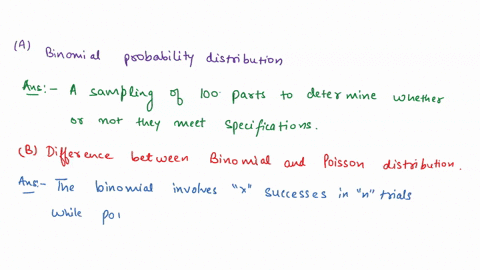 (A) Binomial probability distribution
Ans:- A sampling of 100 parts to determine whether
or not they meet specifications.
(B) Difference between Binomial and Poisson distribution.
Ans:- The binomial involves "x" successes in "n" trials
while poi